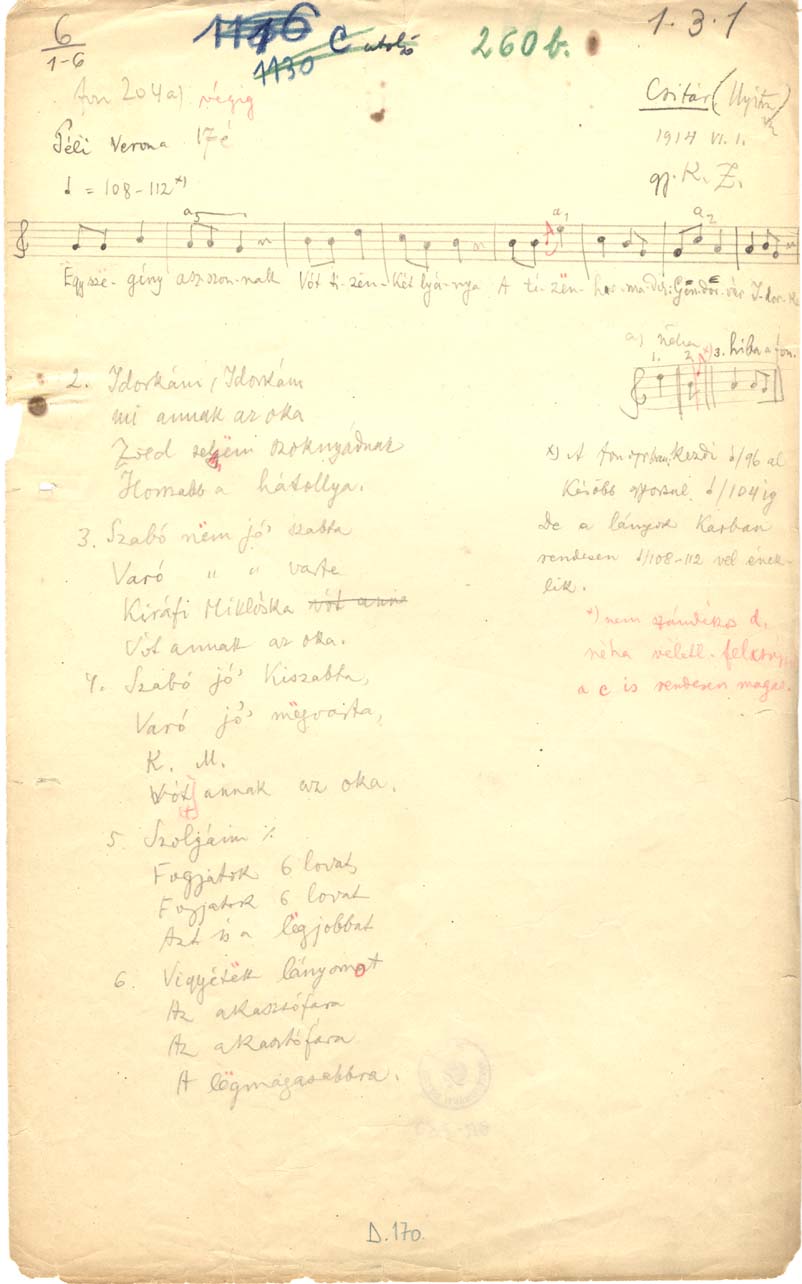 6
1-6
1116 C utolsó
1130
260 b.
1.3.1
fon 204a) végig
Csitár (Nyitra
Péli Verona 17é
1914 VI. 1.
gy. K. Z.
♩ = 108-112 x)
a3 a1 a2
Egy sze- gíny asszson- nak Vót ti- zën- Két lyá- nya A ti- zën- har- ma- dik: Gön- dör- vár I- dor- ka
a) néha
1. 2. 3. hiba a fon.
2. Idorkám, Idorkám
mi annak az oka
Zöd selëm szoknyádnak
Hosszabb a hátollya.
3. Szabó nëm jó' szabta
Varó " " varta
Kiráfi Miklóska vót anna
Vót annak az oka.
4. Szabó jó' Kiszabta,
Varó jó' mëgvarta,
K. M.
Vót annak az oka.
5. Szolgáim ٪
Fogjatok 6 lovat,
Fogjatok 6 lovat
Azt is a lëgjobbat
6. Vigyétëk lányomot
Az akasztófára
Az akasztófára
A lëgmagasabbra.
x) A fonogrban kezdi ♩/96 al
Később gyorsul ♩/104 ig
De a lányok Karban
rendesen ♩/108-112 vel ének-
lik.
x) nem szándékos d,
néha véletl.
a c is rendesen magas.
D. 170.